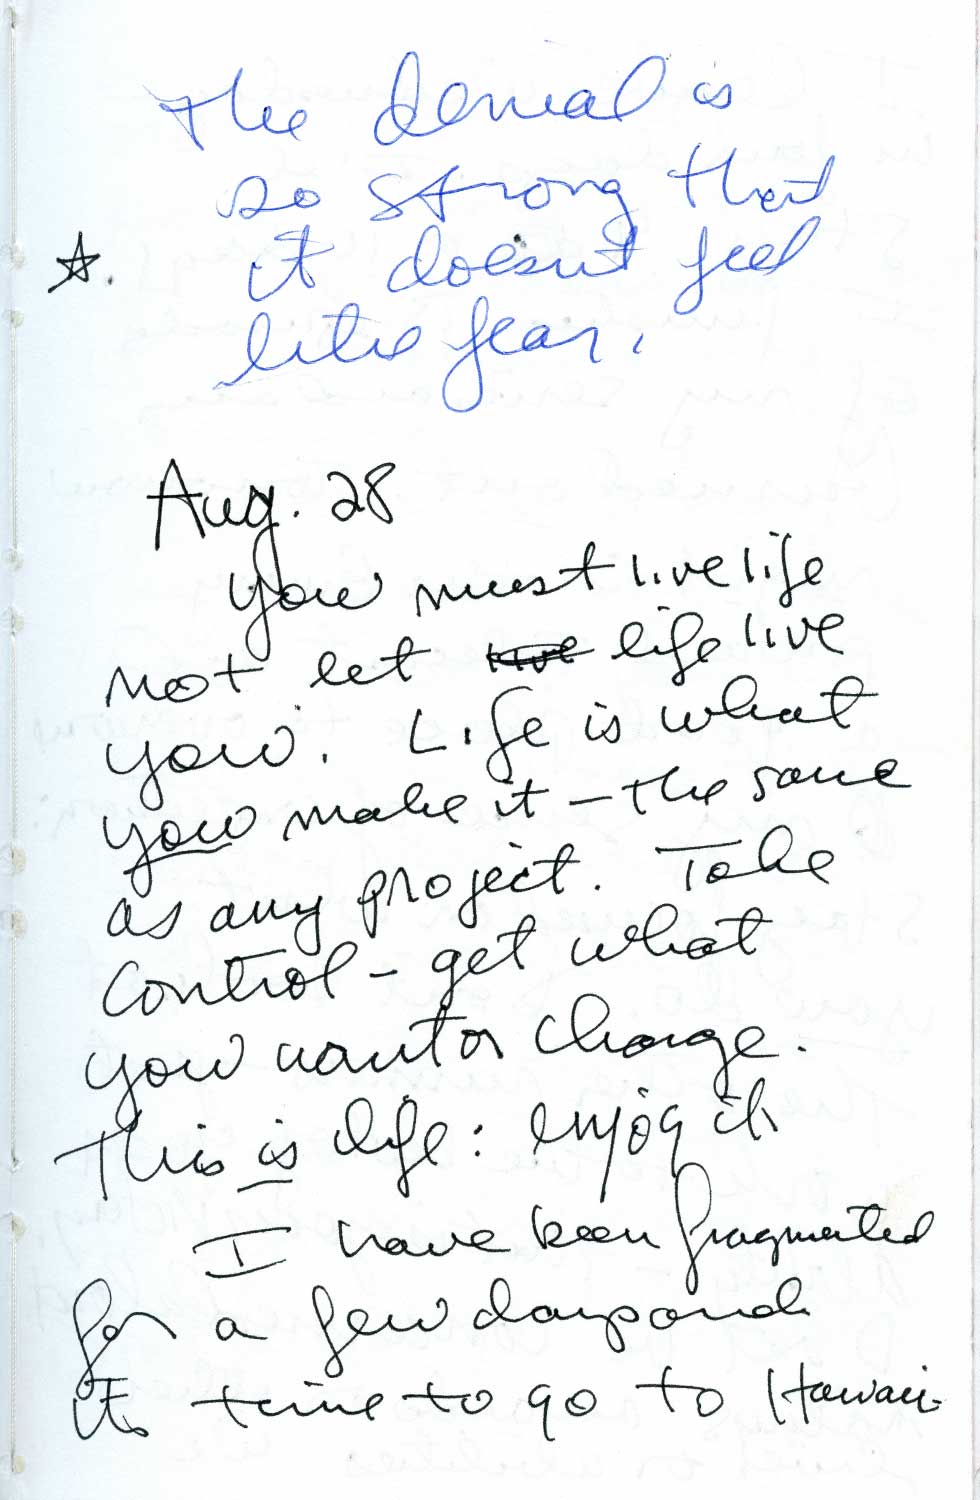 The denial is
so strong that
it doesnt feel
like fear.
Aug. 28
You must live life
not let live life live
you. Life is what
you make it – the same
as any project. Take
control – get what
you want or change.
This is life: enjoy it
I have been fragmented
for a few days and
its time to go to Hawaii.